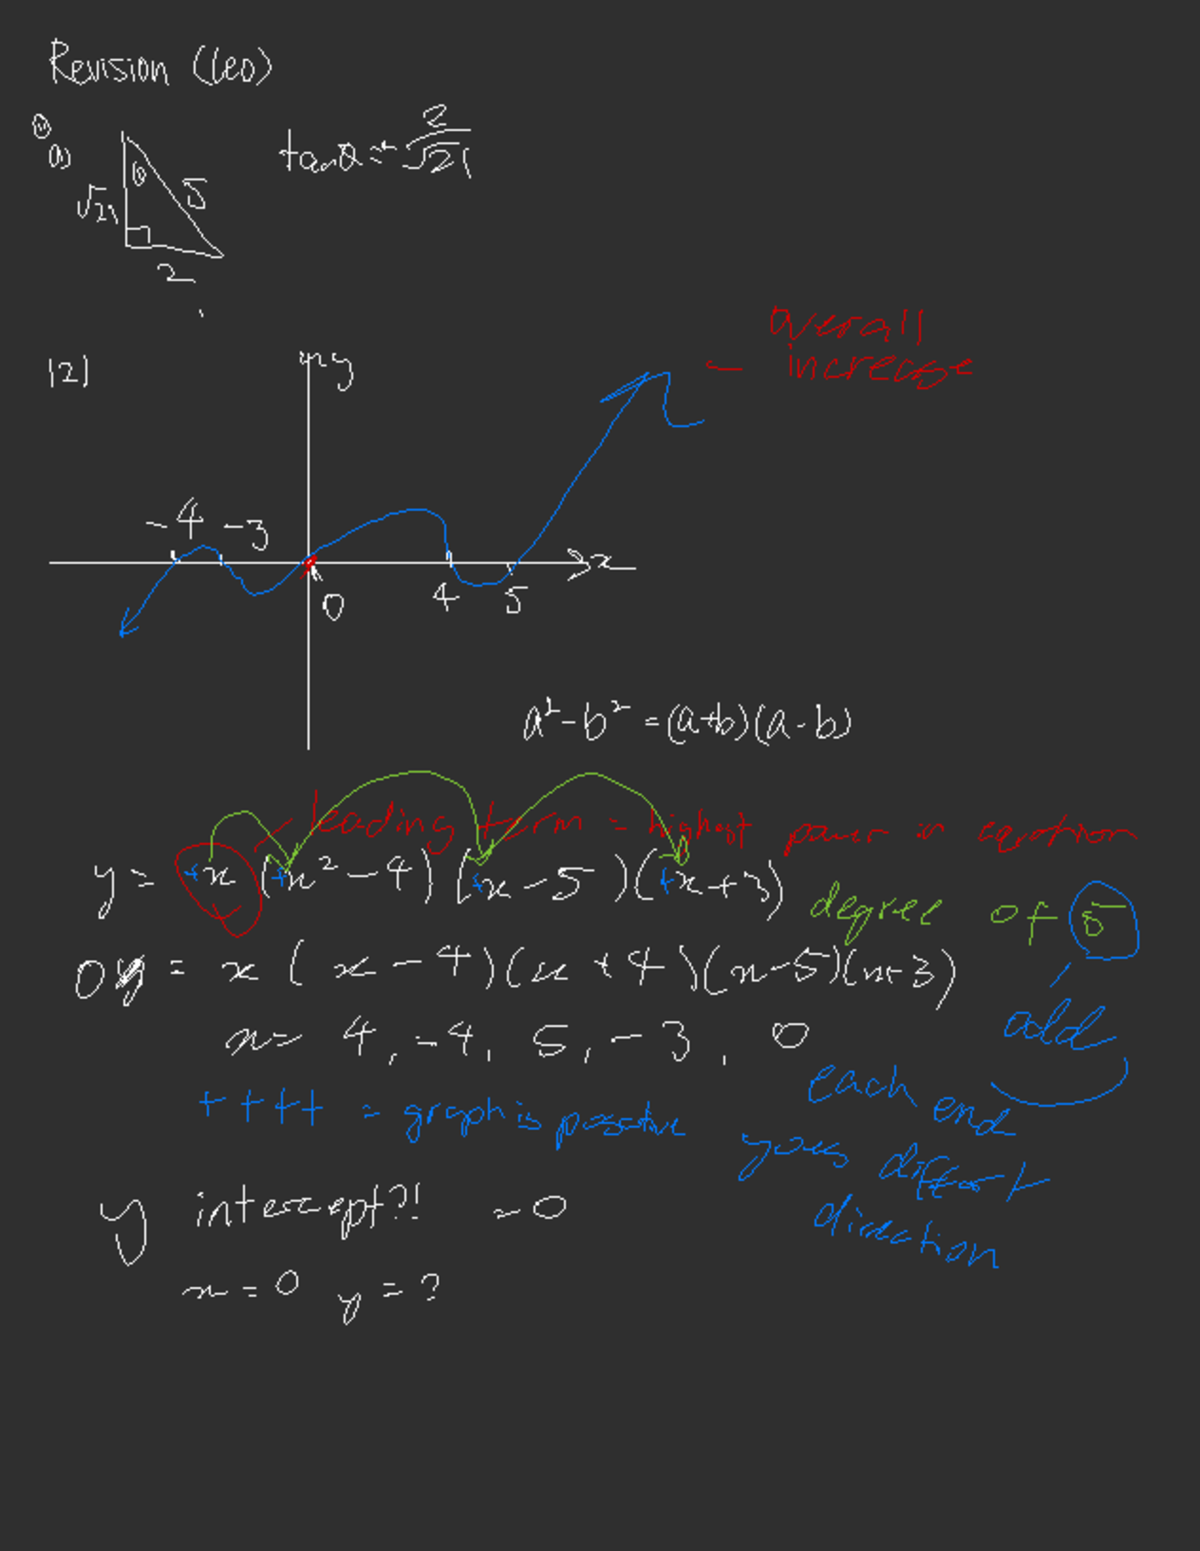 Revision (Leo)
a)
θ
√21
5
2
tanθ = 2/√21
12)
y
overall
increase
-4 -3
x
0
4 5
a² - b² = (a+b)(a-b)
leading term = highest power in equation
y = +x (+x² - 4) (+x - 5) (+x + 3)
degree of 5
0y = x (x - 4)(x + 4)(x - 5)(x + 3)
odd
x = 4, -4, 5, -3, 0
++++ = graph is posative
each end
goes different
direction
y intercept?! = 0
x = 0 y = ?